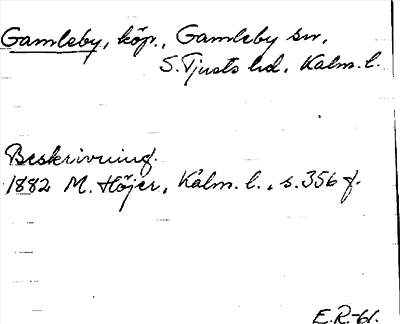 Gamleby, köp., Gamleby sn,
S. Tjusts hd, Kalm. l.
Beskrivning.
1882 M. Höjer, Kalm. l., s. 356 f.
E.R-61.